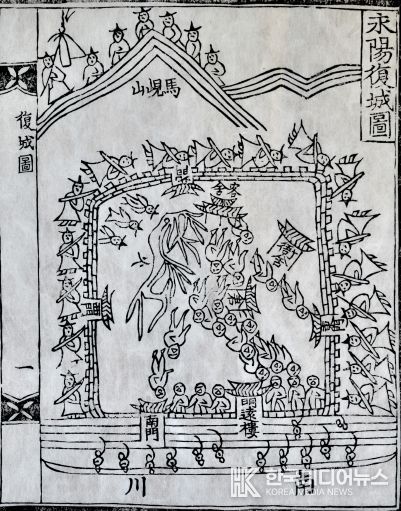 永陽復城圖
馬峴山
復城圖
客舍
明遠樓
南門
川
一
한국미디어뉴스
KOREA MEDIA NEWS